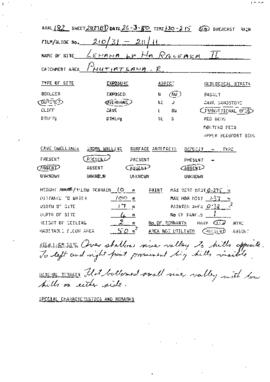 AREA 182 SHEET 2827DD DATE 26-3-80 TIME 130-215 SUN OVERCAST RAIN
FILM/SLIDE No. 210/31 - 211/11
NAME OF SITE LEHANA LP HA RALEAKA II
CATCHMENT AREA PHUTIATSANA. R.
TYPE OF SITE EXPOSURE ASPECT GEOLOGICAL STRATA
BOULDER EXPOSED N NW BASALT
OVERHANG E S CAVE SANDSTONE
CLIFF CAVE SW TRANSITIONAL BEDS
DIMPLY SE RED BEDS
MOLTENO BEDS
UPPER BEAUFORT BEDS
CAVE DWELLINGS STONE WALLING SURFACE ARTIFACTS DEPOSIT - TYPE
PRESENT PRESENT PRESENT PRESENT -
ABSENT ABSENT ABSENT ABSENT
UNKNOWN UNKNOWN UNKNOWN UNKNOWN
HEIGHT BELOW TERRAIN 10 m PAINT MAX DIST
DISTANCE TO WATER 100 m MAX HOR DIST
WIDTH OF SITE 17 m PAINTED AREA
DEPTH OF SITE 4 m No OF PANELS 1
HEIGHT OF CEILING 2 m No OF
HABITABLE FLOOR AREA 50 m² AREA NOT UTILIZED PRESENT ABSENT
VIEW FROM SITE Over shallow river valley to hills opposite.
To left and right most prominent big hills visible.
GENERAL TERRAIN Flat bottomed small river valley with low
hills on either side.
SPECIAL CHARACTERISTICS AND REMARKS